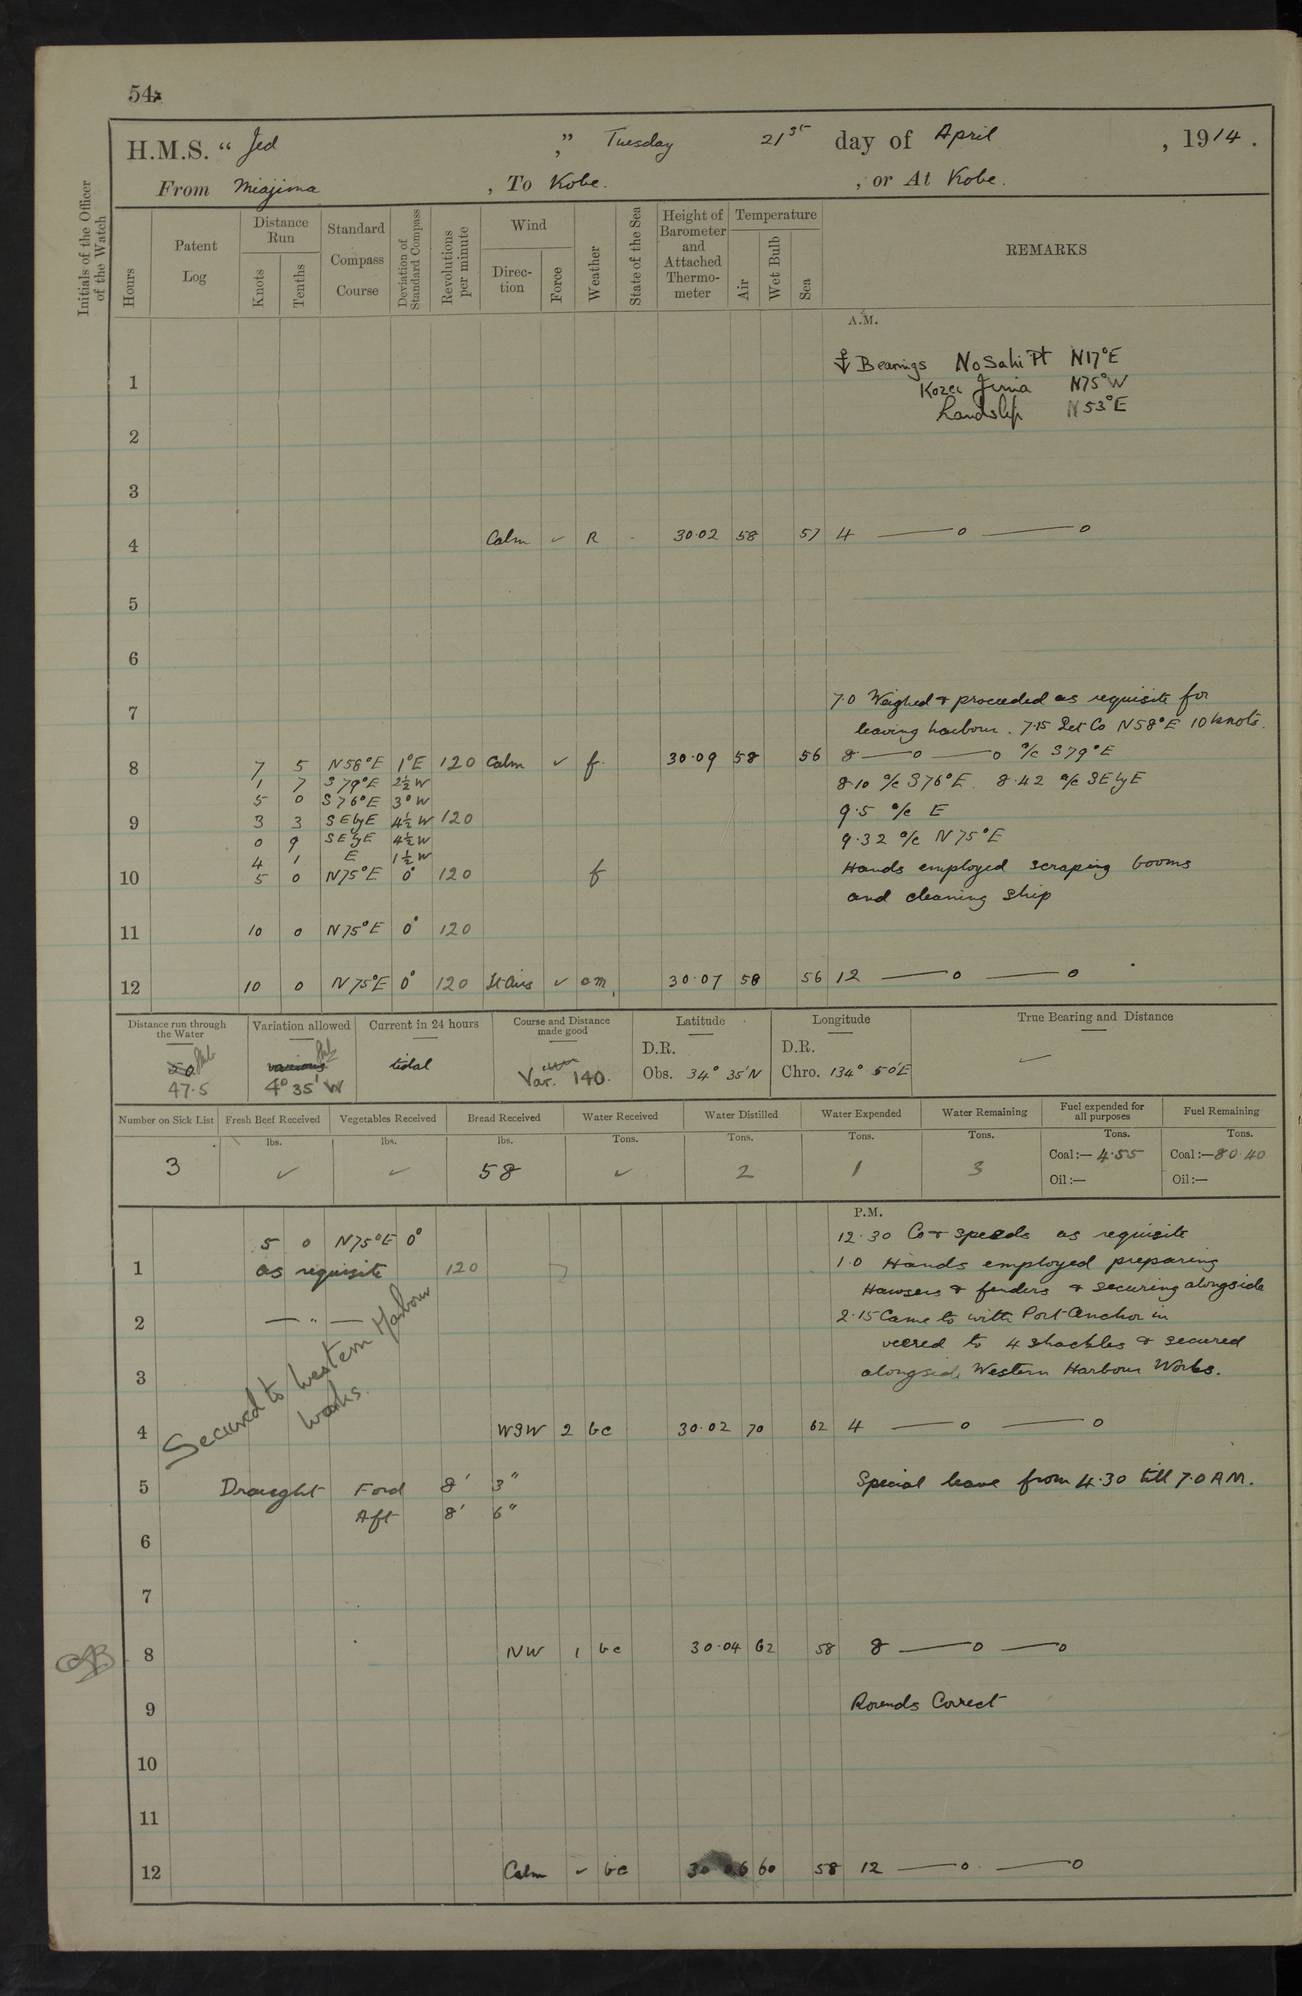 54
H.M.S. “ Jed ,” Tuesday 21st day of April , 1914 .
From Miajima , To Kobe. , or At Kobe.
Initials of the Officer of the Watch
Hours
Patent Log
Distance Run
Knots
Tenths
Standard Compass Course
Deviation of Standard Compass
Revolutions per minute
Wind
Direction
Force
Weather
State of the Sea
Height of Barometer and Attached Thermometer
Temperature
Air
Wet Bulb
Sea
REMARKS
A.M.
Bearings Nosaki Pt N17°E
1
Jima N75°W
Landslip N53°E
2
3
4 Calm ✓ R - 30.02 58 57 4 —— o —— o
5
6
7.0 Weighed & proceeded as requisite for
7
leaving harbour. 7.15 Set Co N58°E 10 knots.
8 7 5 N58°E 1°E 120 Calm ✓ f. 30.09 58 56 8 —— o —— o a/c S79°E
1 7 S79°E 2½W 8.10 a/c S76°E. 8.42 a/c SEbyE
5 0 S76°E 3°W 9.5 a/c E
9 3 3 SEbyE 4½W 120
0 9 SEbyE 4½W 9.32 a/c N75°E
4 1 E 1½W
10 5 0 N75°E 0° 120 f Hands employed scraping booms
and cleaning ship
11 10 0 N75°E 0° 120
12 10 0 N75°E 0° 120 Lt airs ✓ om 30.07 58 56 12 —— o —— o
Distance run through the Water
Variation allowed
Current in 24 hours
Course and Distance made good
Latitude
Longitude
True Bearing and Distance
47.5
4° 35' W
tidal
Var. 140.
D.R.
Obs. 34° 35'N
D.R.
Chro. 134° 50'E
✓
Number on Sick List
Fresh Beef Received
Vegetables Received
Bread Received
Water Received
Water Distilled
Water Expended
Water Remaining
Fuel expended for all purposes
Fuel Remaining
lbs. lbs. lbs. Tons. Tons. Tons. Tons. Tons. Tons.
3 ✓ ✓ 58 ✓ 2 1 3
Coal:— 4.55 Coal:— 80.40
Oil:— Oil:—
P.M.
5 0 N75°E 0° 12.30 Co & speeds as requisite
1 as requisite 120 1.0 Hands employed preparing
Hawsers & fenders & securing alongside
2 — " — 2.15 Came to with Port Anchor in
veered to 4 shackles & secured
3 alongside Western Harbour Works.
Secured to Western Harbour
Works.
4 WSW 2 bc 30.02 70 62 4 —— o —— o
5 Draught Ford 8' 3" Special leave from 4.30 till 7.0 AM.
Aft 8' 6"
6
7
8 NW 1 bc 30.04 62 58 8 —— o —— o
9 Rounds Correct
10
11
12 Calm ✓ bc 30.06 60 58 12 —— o —— o